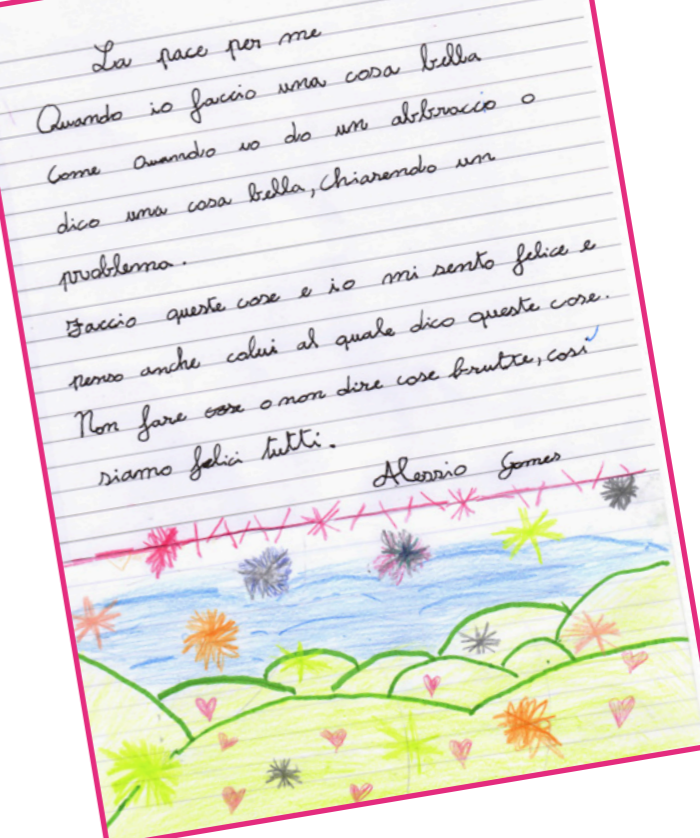 La pace per me
Quando io faccio una cosa bella
Come quando io do un abbraccio o
dico una cosa bella, chiarendo un
problema.
Faccio queste cose e io mi sento felice e
penso anche colui al quale dico queste cose.
Non fare cose o non dire cose brutte, così
siamo felici tutti.
Alessio Gomes